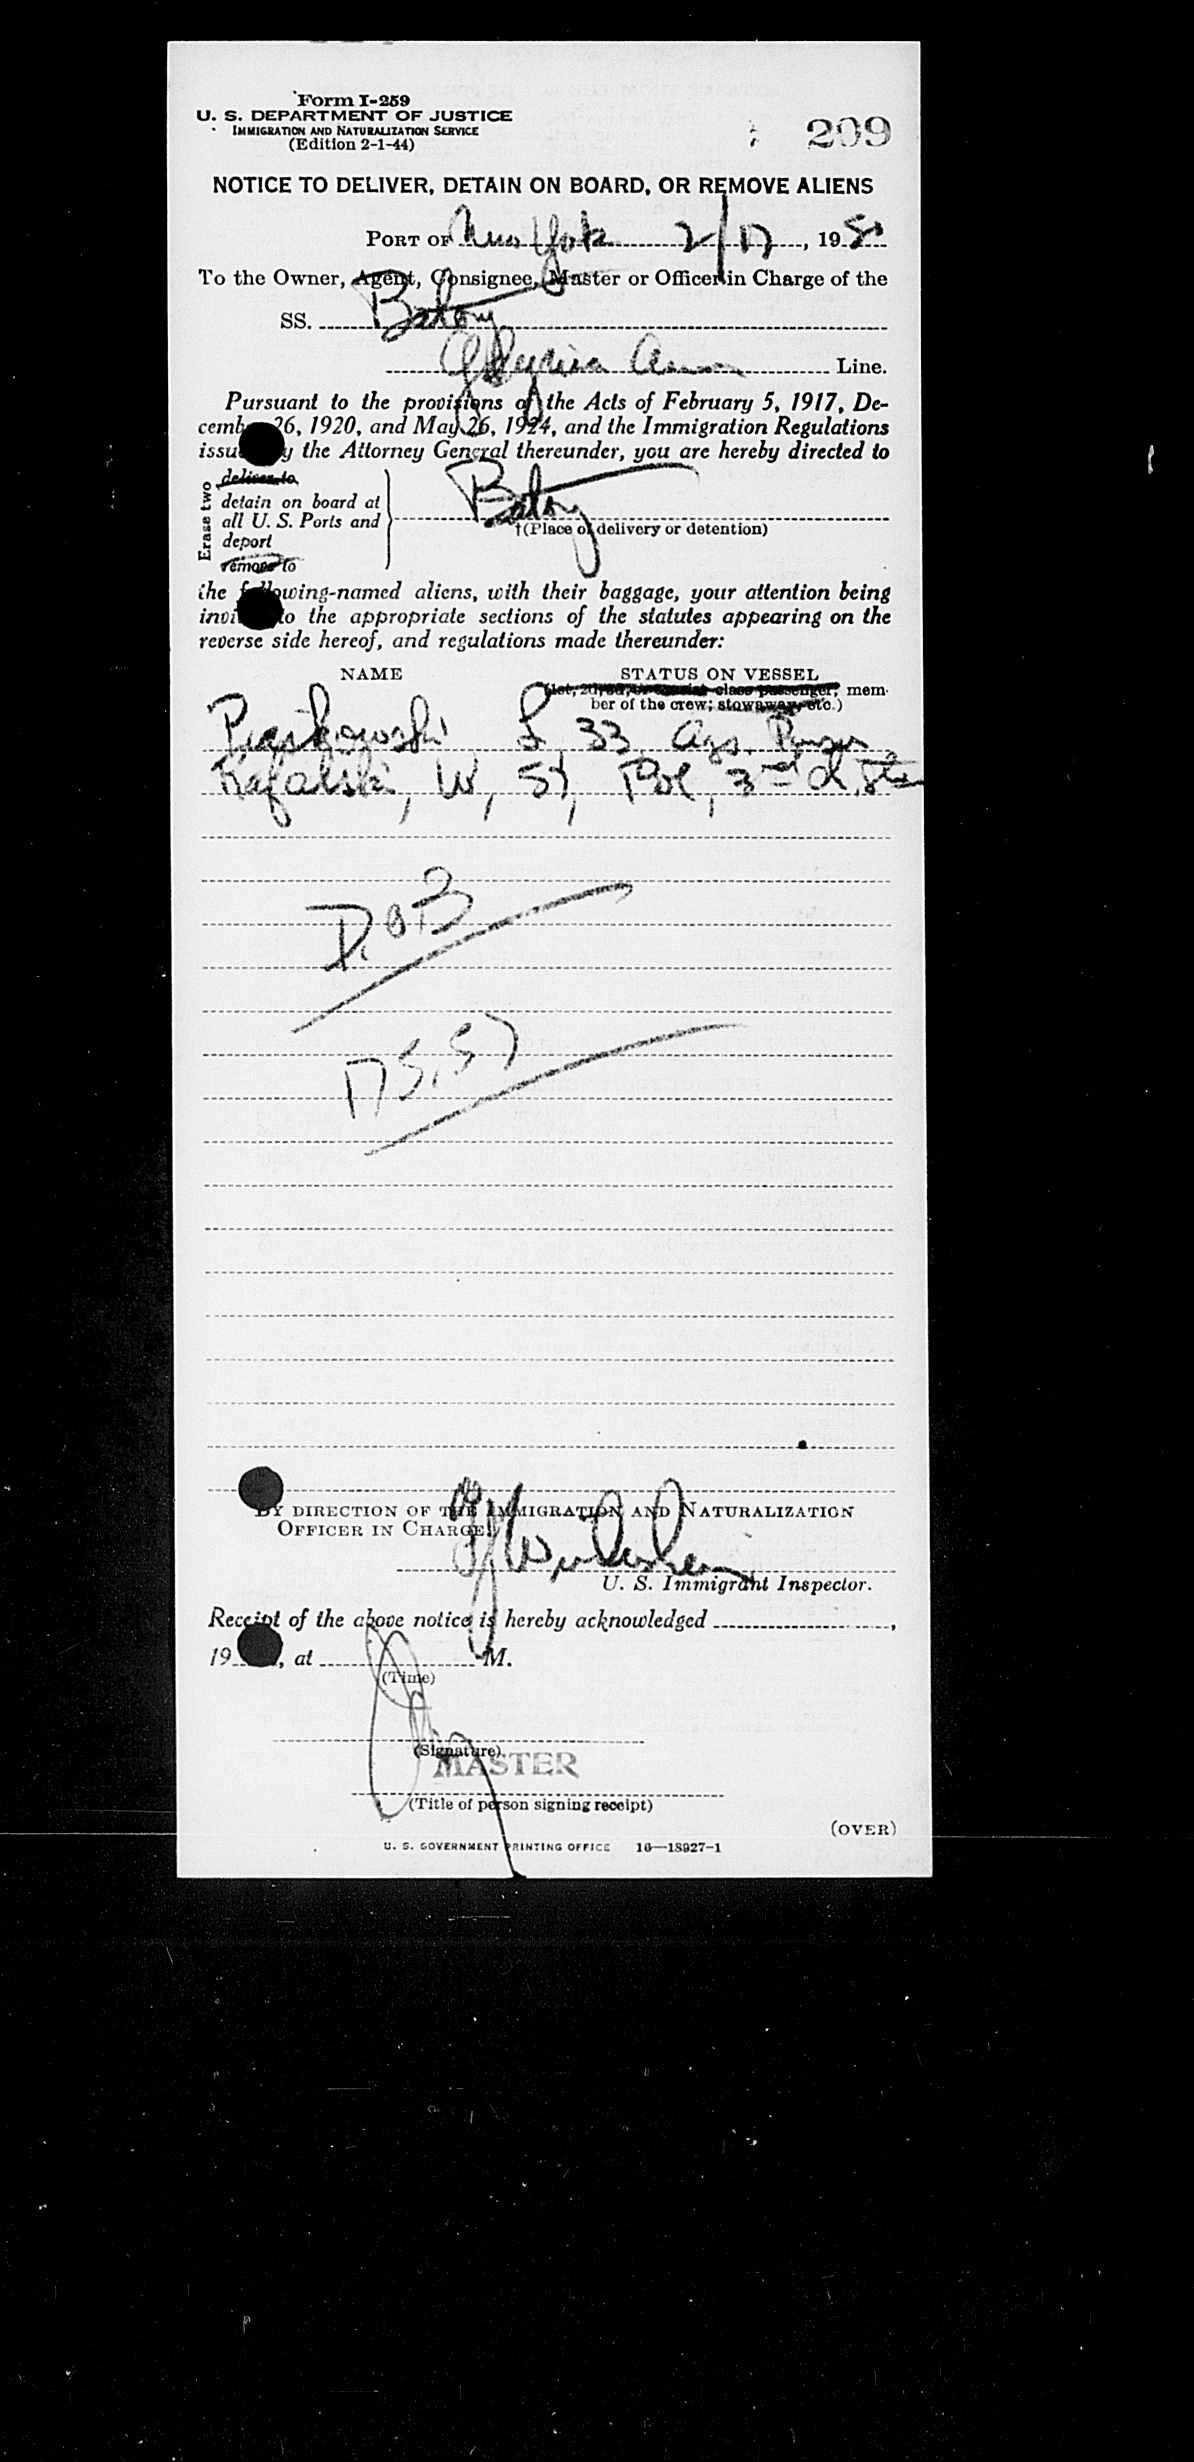 Form I-259
U. S. DEPARTMENT OF JUSTICE
IMMIGRATION AND NATURALIZATION SERVICE
(Edition 2-1-44)
209
NOTICE TO DELIVER, DETAIN ON BOARD, OR REMOVE ALIENS
PORT OF New York 2/17, 1950
To the Owner, Agent, Consignee, Master or Officer in Charge of the
SS. Batory
Gdynia Line.
Pursuant to the provisions of the Acts of February 5, 1917, De-
cemb 26, 1920, and May 26, 1924, and the Immigration Regulations
issu y the Attorney General thereunder, you are hereby directed to
Erase two
deliver to
detain on board at
all U. S. Ports and
deport
remove to
Batory
†(Place of delivery or detention)
the following-named aliens, with their baggage, your attention being
invi to the appropriate sections of the statutes appearing on the
reverse side hereof, and regulations made thereunder:
NAME STATUS ON VESSEL
(1st, 2d, 3d, or special class passenger; mem-
ber of the crew; stowaway, etc.)
L, 33, Purser
Rafalski, W, 57, Pol, 3rd
D.O.B
By DIRECTION OF THE IMMIGRATION AND NATURALIZATION
OFFICER IN CHARGE:
U. S. Immigrant Inspector.
Receipt of the above notice is hereby acknowledged ,
19 , at M.
(Time)
(Signature)
MASTER
(Title of person signing receipt)
(OVER)
U. S. GOVERNMENT PRINTING OFFICE 16—18927-1